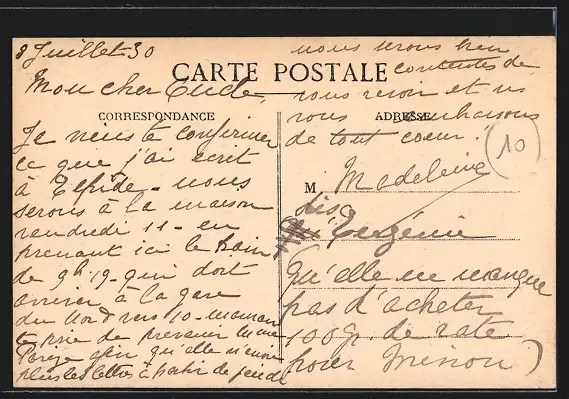 8 Juillet 30
CARTE POSTALE
CORRESPONDANCE
Mon cher
Je viens te confirmer
ce que j'ai écrit
à nous
serons à la maison
vendredi 11 - en
prenant ici le train
de 9h19 qui doit
arriver à la gare
du Nord vers 10 - maman
te prie de prévenir Mme
afin qu'elle n'envoie
plus les lettres à partir de jeudi
nous serons bien
contentes de
vous revoir et
vous
de tout coeur.
ADRESSE
10
M
Madeleine
dis à
Eugénie
Qu'elle ne manque
pas d'acheter
100 gr. de rate
pour Minou)